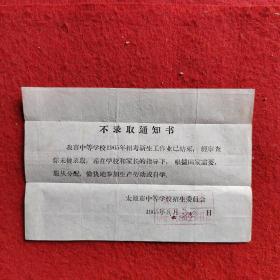 不录取通知书
我市中等学校1965年招考新生工作业已结束，经审查
你未被录取，希在学校和家长的指导下，根据国家需要，
服从分配，愉快地参加生产劳动或自学。
太原市中等学校招生委员会
1965年8月 日